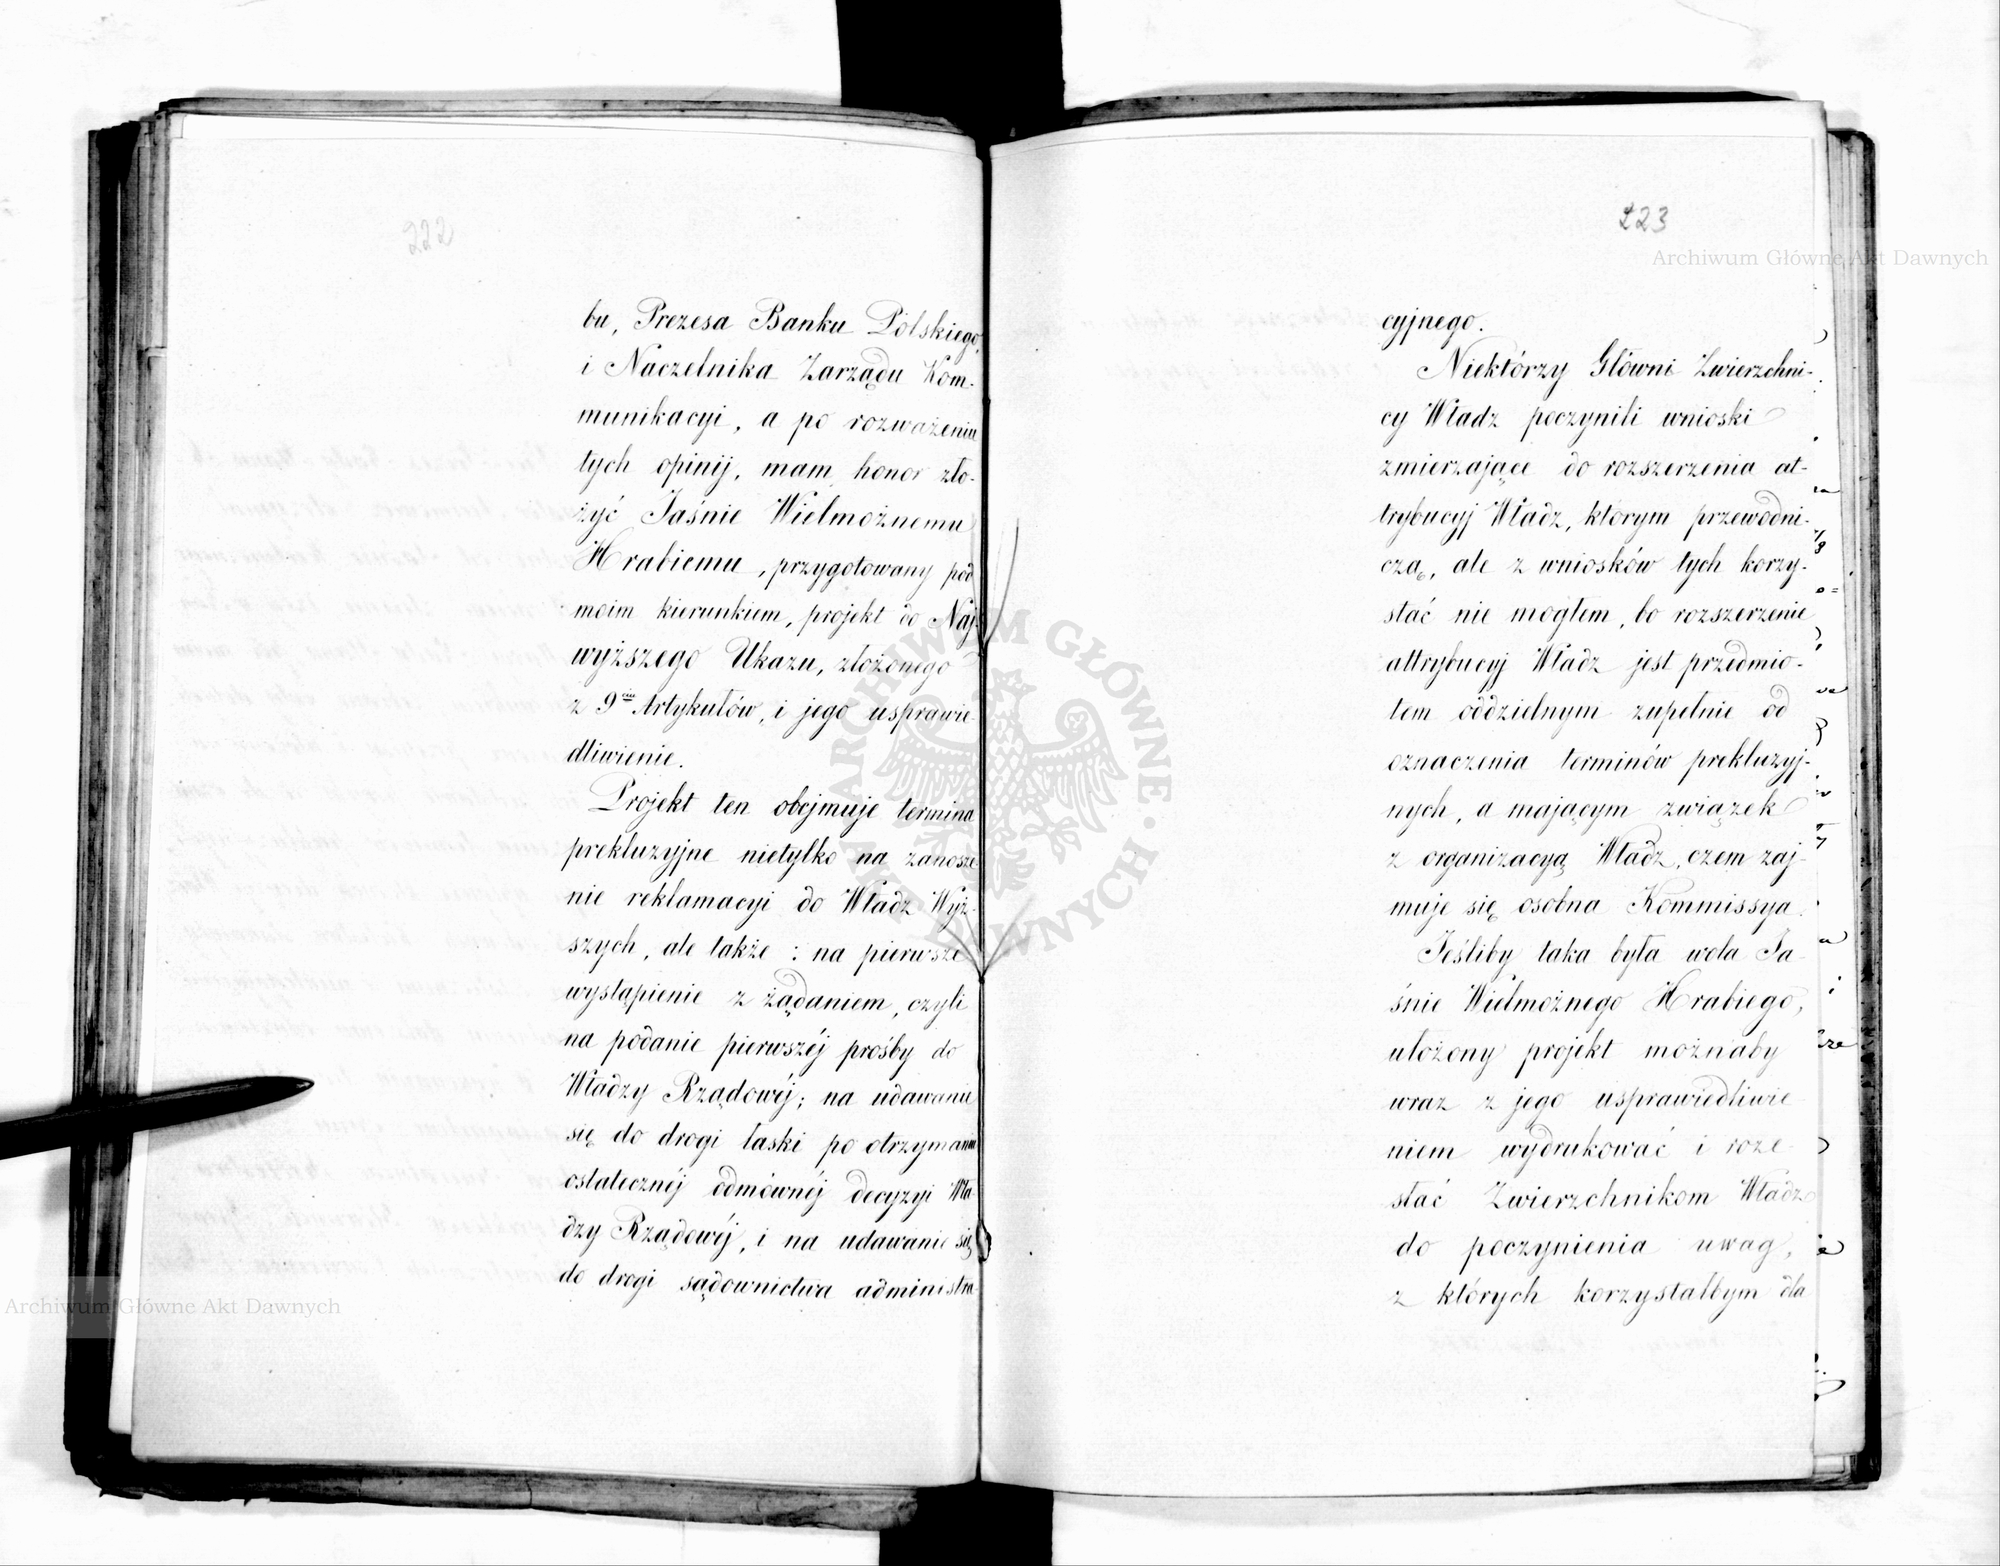 222
bu, Prezesa Banku Polskiego,
i Naczelnika Zarządu Kom-
munikacyi, a po rozważeniu
tych opinij, mam honor zło-
żyć Jaśnie Wielmożnemu
Hrabiemu, przygotowany pod
moim kierunkiem, projekt do Naj-
wyższego Ukazu, złożonego
z 9ciu Artykułów, i jego usprawie
dliwienie.
Projekt ten obejmuje termina
prekluzyjne nietylko na zanosze
nie reklamacyi do Władz Wyż-
szych, ale także: na pierwsze
wystąpienie z żądaniem, czyli
na podanie pierwszéj prośby do
Władzy Rządowéj; na udawanie
się do drogi łaski po otrzymaniu
ostatecznéj odmównéj decyzyi Wła-
dzy Rządowéj, i na udawanie się
do drogi sądownictwa administra
223
cyjnego.
Niektórzy Główni Zwierzchni-
cy Władz poczynili wnioski
zmierzające do rozszerzenia at-
trybucyj Władz, którym przewodni-
czą, ale z wniosków tych korzy-
stać nie mogłem, bo rozszerzenie
attrybucyj Władz jest przedmio-
tem oddzielnym zupełnie od
oznaczenia terminów prekluzyj-
nych, a mającym związek
z organizacyą Władz, czem zaj-
muje się osobna Kommissya.
Jeśliby taka była wola Ja-
śnie Wielmożnego Hrabiego,
ułożony projekt możnaby
wraz z jego usprawiedliwie
niem wydrukować i roze
słać Zwierzchnikom Władz
do poczynienia uwag,
z których korzystałbym dla
Archiwum Główne Akt Dawnych
Archiwum Główne Akt Dawnych
ARCHIWUM GŁÓWNE AKT DAWNYCH